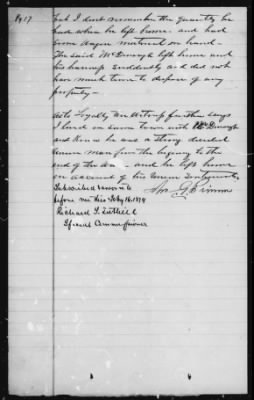 Pg 17
but I dont remember the quantity he
had when he left home - and had
some wagon material on hand.
The said McDonough left home and
his
suddenly and did not
have much time to dispose of any
property -
As to Loyalty the witness further says
I lived in same town with McDonough
and know he was a strong decided
Union man from the begining to the
end of the war - and he left home
on account of his Union Sentiments
Subscribed & sworn to
before me this Feby 16. 1874
Richard S. Tuthill
Special Commissioner